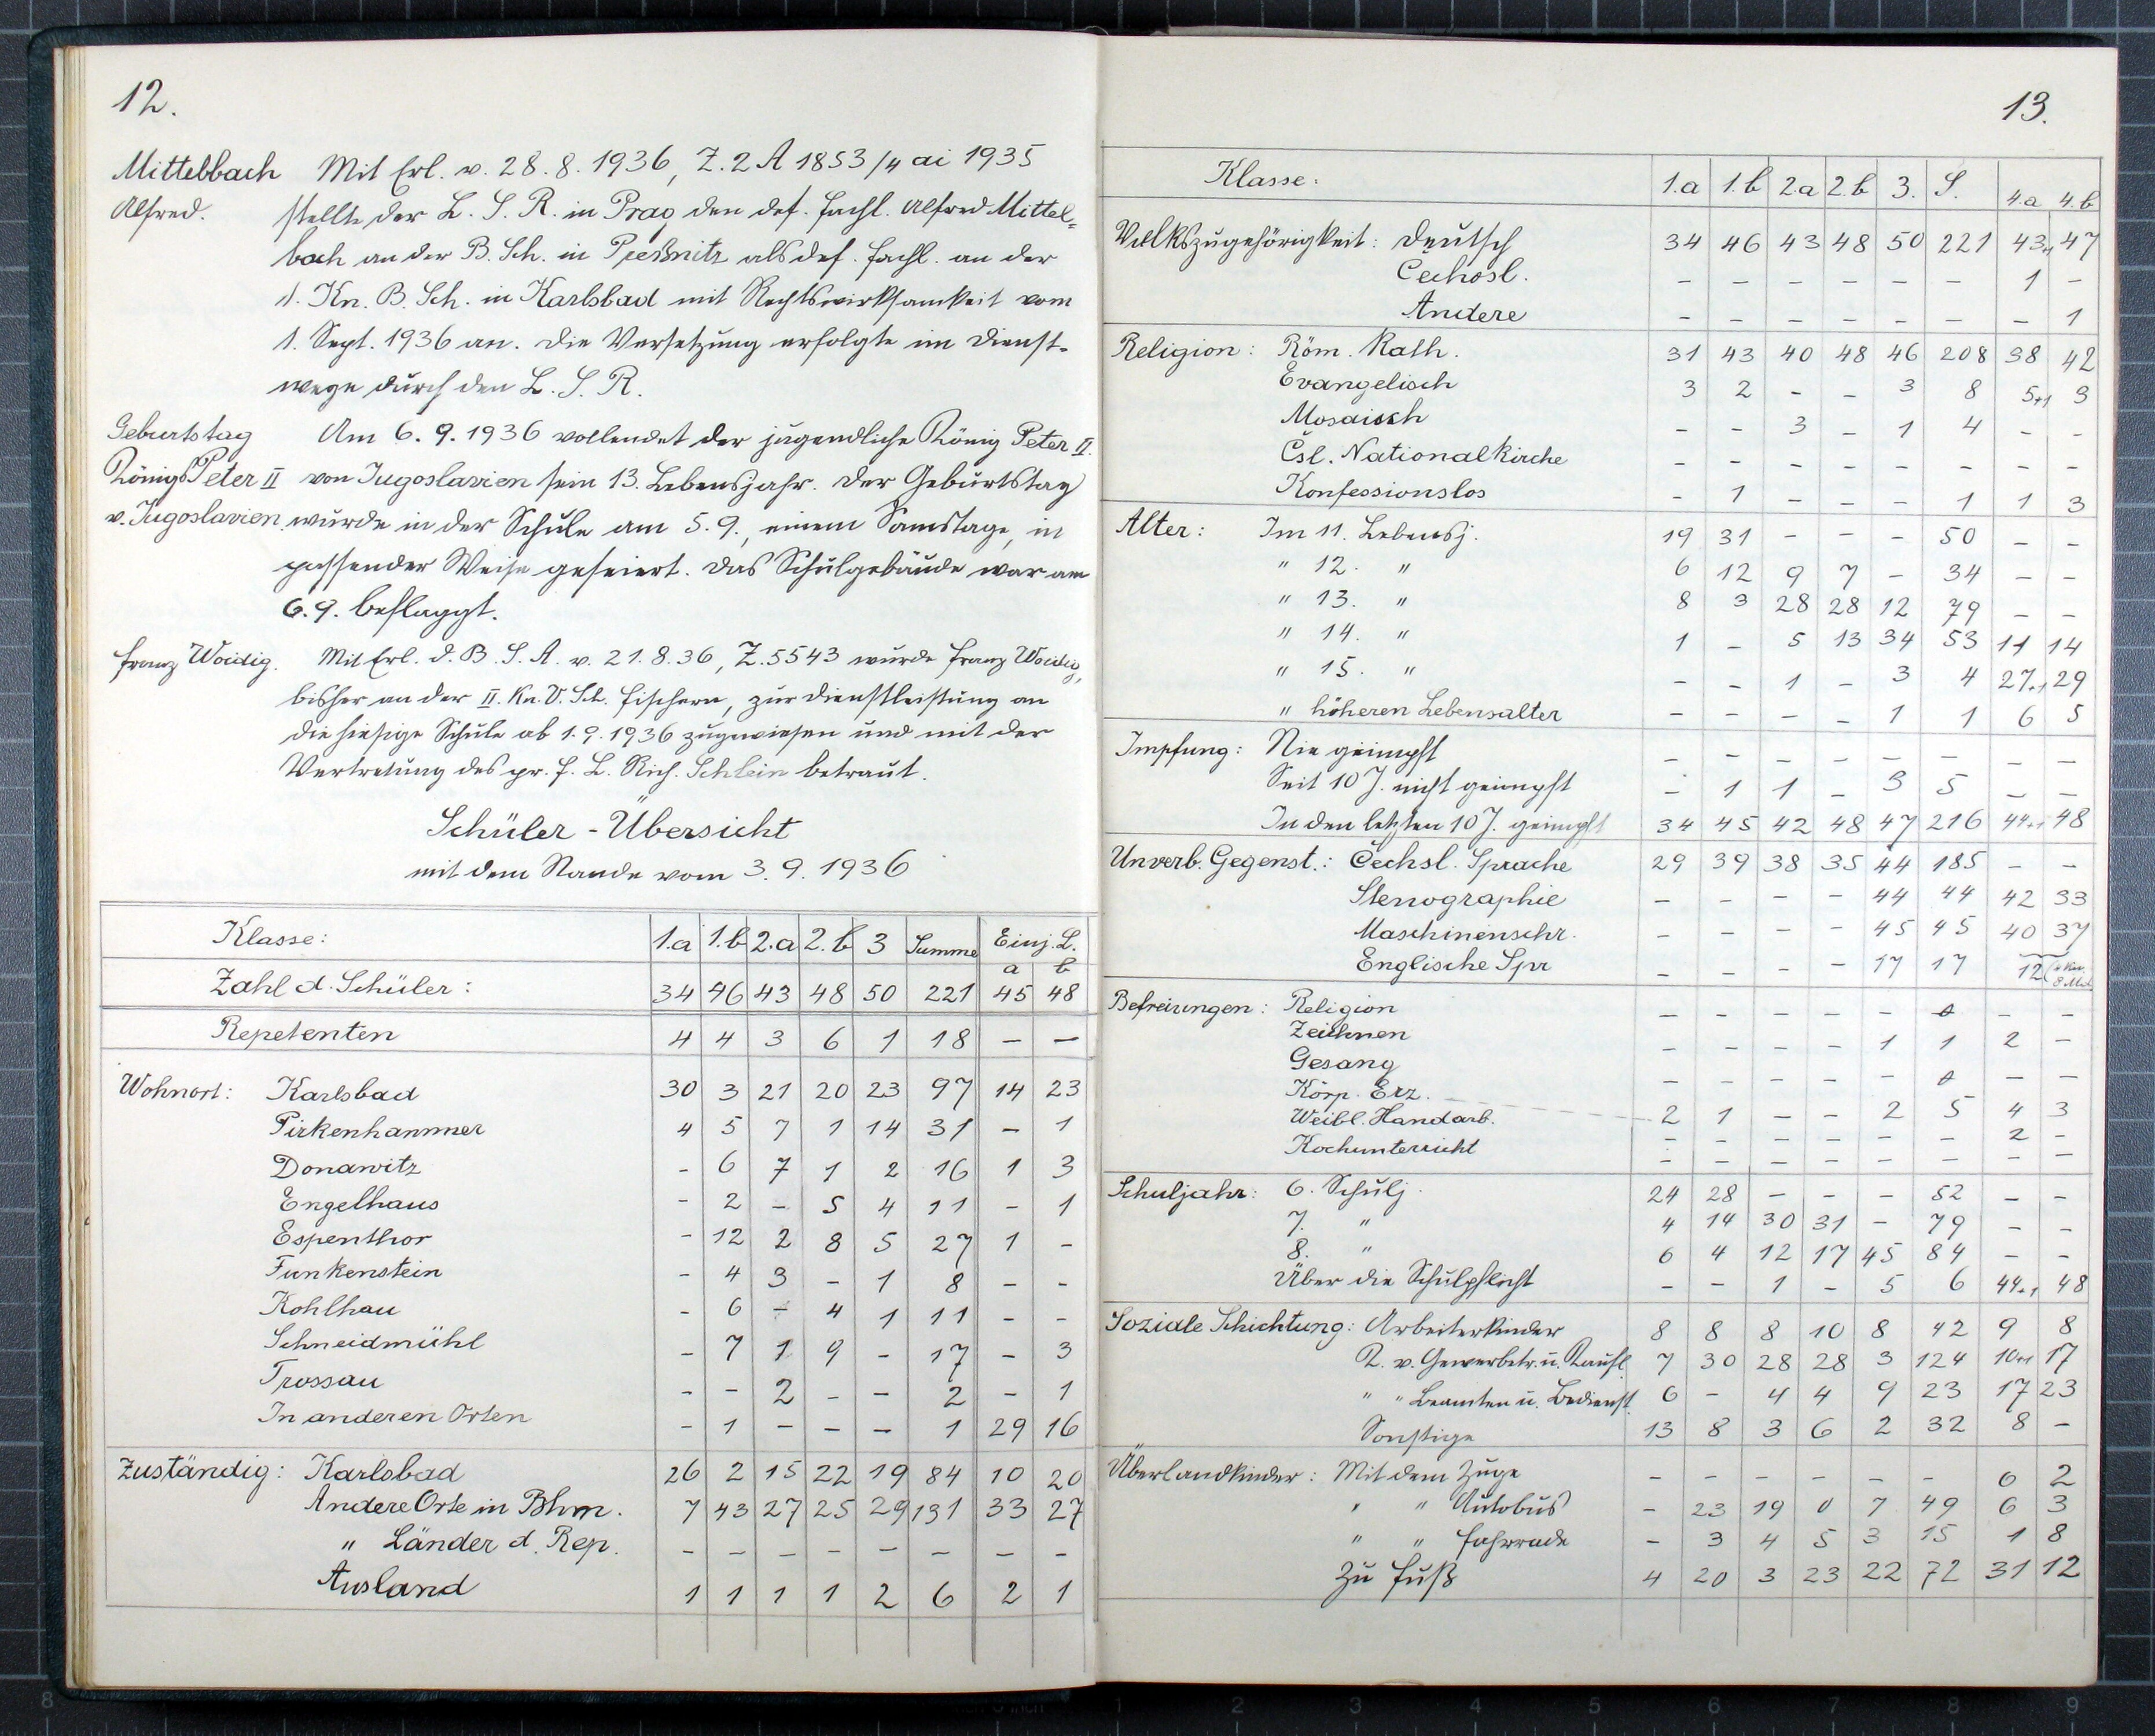 12.
Mittelbach Mit Erl. v. 28. 8. 1936, Z. 2 A 1853/4 ai 1935
Alfred. stellte der L. S. R. in Prag den def. Fachl. Alfred Mittel=
bach an der B. Sch. in Preßnitz als def. Fachl. an der
1. Kn. B. Sch. in Karlsbad mit Rechtswirksamkeit vom
1. Sept. 1936 an. Die Versetzung erfolgte im Dienst-
wege durch den L. S. R.
Geburtstag Am 6. 9. 1936 vollendet der jugendliche König Peter II.
Königs Peter II von Jugoslavien sein 13. Lebensjahr. Der Geburtstag
v. Jugoslavien wurde in der Schule am 5. 9., einem Samstage, in
passender Weise gefeiert. Das Schulgebäude war am
6. 9. beflaggt.
Franz Woidig. Mit Erl. d. B. S. A. v. 21. 8. 36, Z. 5543 wurde Franz Woidig,
bisher an der II. Kn. V. Sch. Fischern, zur Dienstleistung an
die hiesige Schule ab 1. 9. 1936 zugewiesen und mit der
Vertretung des pr. F. L. Rich. Schlein betraut.
Schüler-Übersicht
mit dem Stande vom 3. 9. 1936
Klasse: 1.a 1.b 2.a 2.b 3 Summe Einj. L.
a b
Zahl d. Schüler: 34 46 43 48 50 221 45 48
Repetenten 4 4 3 6 1 18 – –
Wohnort: Karlsbad 30 3 21 20 23 97 14 23
Pirkenhammer 4 5 7 1 14 31 – 1
Donawitz – 6 7 1 2 16 1 3
Engelhaus – 2 – 5 4 11 – 1
Espenthor – 12 2 8 5 27 1 –
Funkenstein – 4 3 – 1 8 – –
Kohlhau – 6 – 4 1 11 – –
Schneidmühl – 7 1 9 – 17 – 3
Trossau – – 2 – – 2 – 1
In anderen Orten – 1 – – – 1 29 16
Zuständig: Karlsbad 26 2 15 22 19 84 10 20
Andere Orte in Bhm. 7 43 27 25 29 131 33 27
" Länder d. Rep. – – – – – – – –
Ausland 1 1 1 1 2 6 2 1
13.
Klasse: 1.a 1.b 2.a 2.b 3. S. 4.a 4.b
Volkszugehörigkeit: Deutsch 34 46 43 48 50 221 43+1 47
Čechosl. – – – – – – 1 –
Andere – – – – – – – 1
Religion: Röm. Kath. 31 43 40 48 46 208 38 42
Evangelisch 3 2 – – 3 8 5+1 3
Mosaisch – – 3 – 1 4 – –
Čsl. Nationalkirche – – – – – – – –
Konfessionslos – 1 – – – 1 1 3
Alter: Im 11. Lebensj. 19 31 – – – 50 – –
" 12. " 6 12 9 7 – 34 – –
" 13. " 8 3 28 28 12 79 – –
" 14. " 1 – 5 13 34 53 11 14
" 15. " – – 1 – 3 4 27+1 29
" höheren Lebensalter – – – – 1 1 6 5
Impfung: Nie geimpft – – – – – – – –
Seit 10 J. nicht geimpft – 1 1 – 3 5 – –
In den letzten 10 J. geimpft 34 45 42 48 47 216 44+1 48
Unverb. Gegenst.: Čechsl. Sprache 29 39 38 35 44 185 – –
Stenographie – – – – 44 44 42 33
Maschinenschr. – – – – 45 45 40 37
Englische Spr – – – – 17 17 12
Befreiungen: Religion – – – – – 0 – –
Zeichnen – – – – 1 1 2 –
Gesang – – – – – 0 – –
Körp. Erz. 2 1 – – 2 5 4 3
Weibl. Handarb. – – – – – – 2 –
Kochunterricht – – – – – – – –
Schuljahr: 6. Schulj. 24 28 – – – 52 – –
7. " 4 14 30 31 – 79 – –
8. " 6 4 12 17 45 84 – –
Über die Schulpflicht – – 1 – 5 6 44+1 48
Soziale Schichtung: Arbeiterkinder 8 8 8 10 8 42 9 8
K. v. Gewerbetr. u. Kaufl. 7 30 28 28 3 124 10+1 17
" " Beamten u. Bedienst. 6 – 4 4 9 23 17 23
Sonstige 13 8 3 6 2 32 8 –
Überlandkinder: Mit dem Zuge – – – – – – 0 2
" " Autobus – 23 19 0 7 49 6 3
" " Fahrrade – 3 4 5 3 15 1 8
Zu Fuß 4 20 3 23 22 72 31 12
8
1 2 3 4 5 6 7 8 9